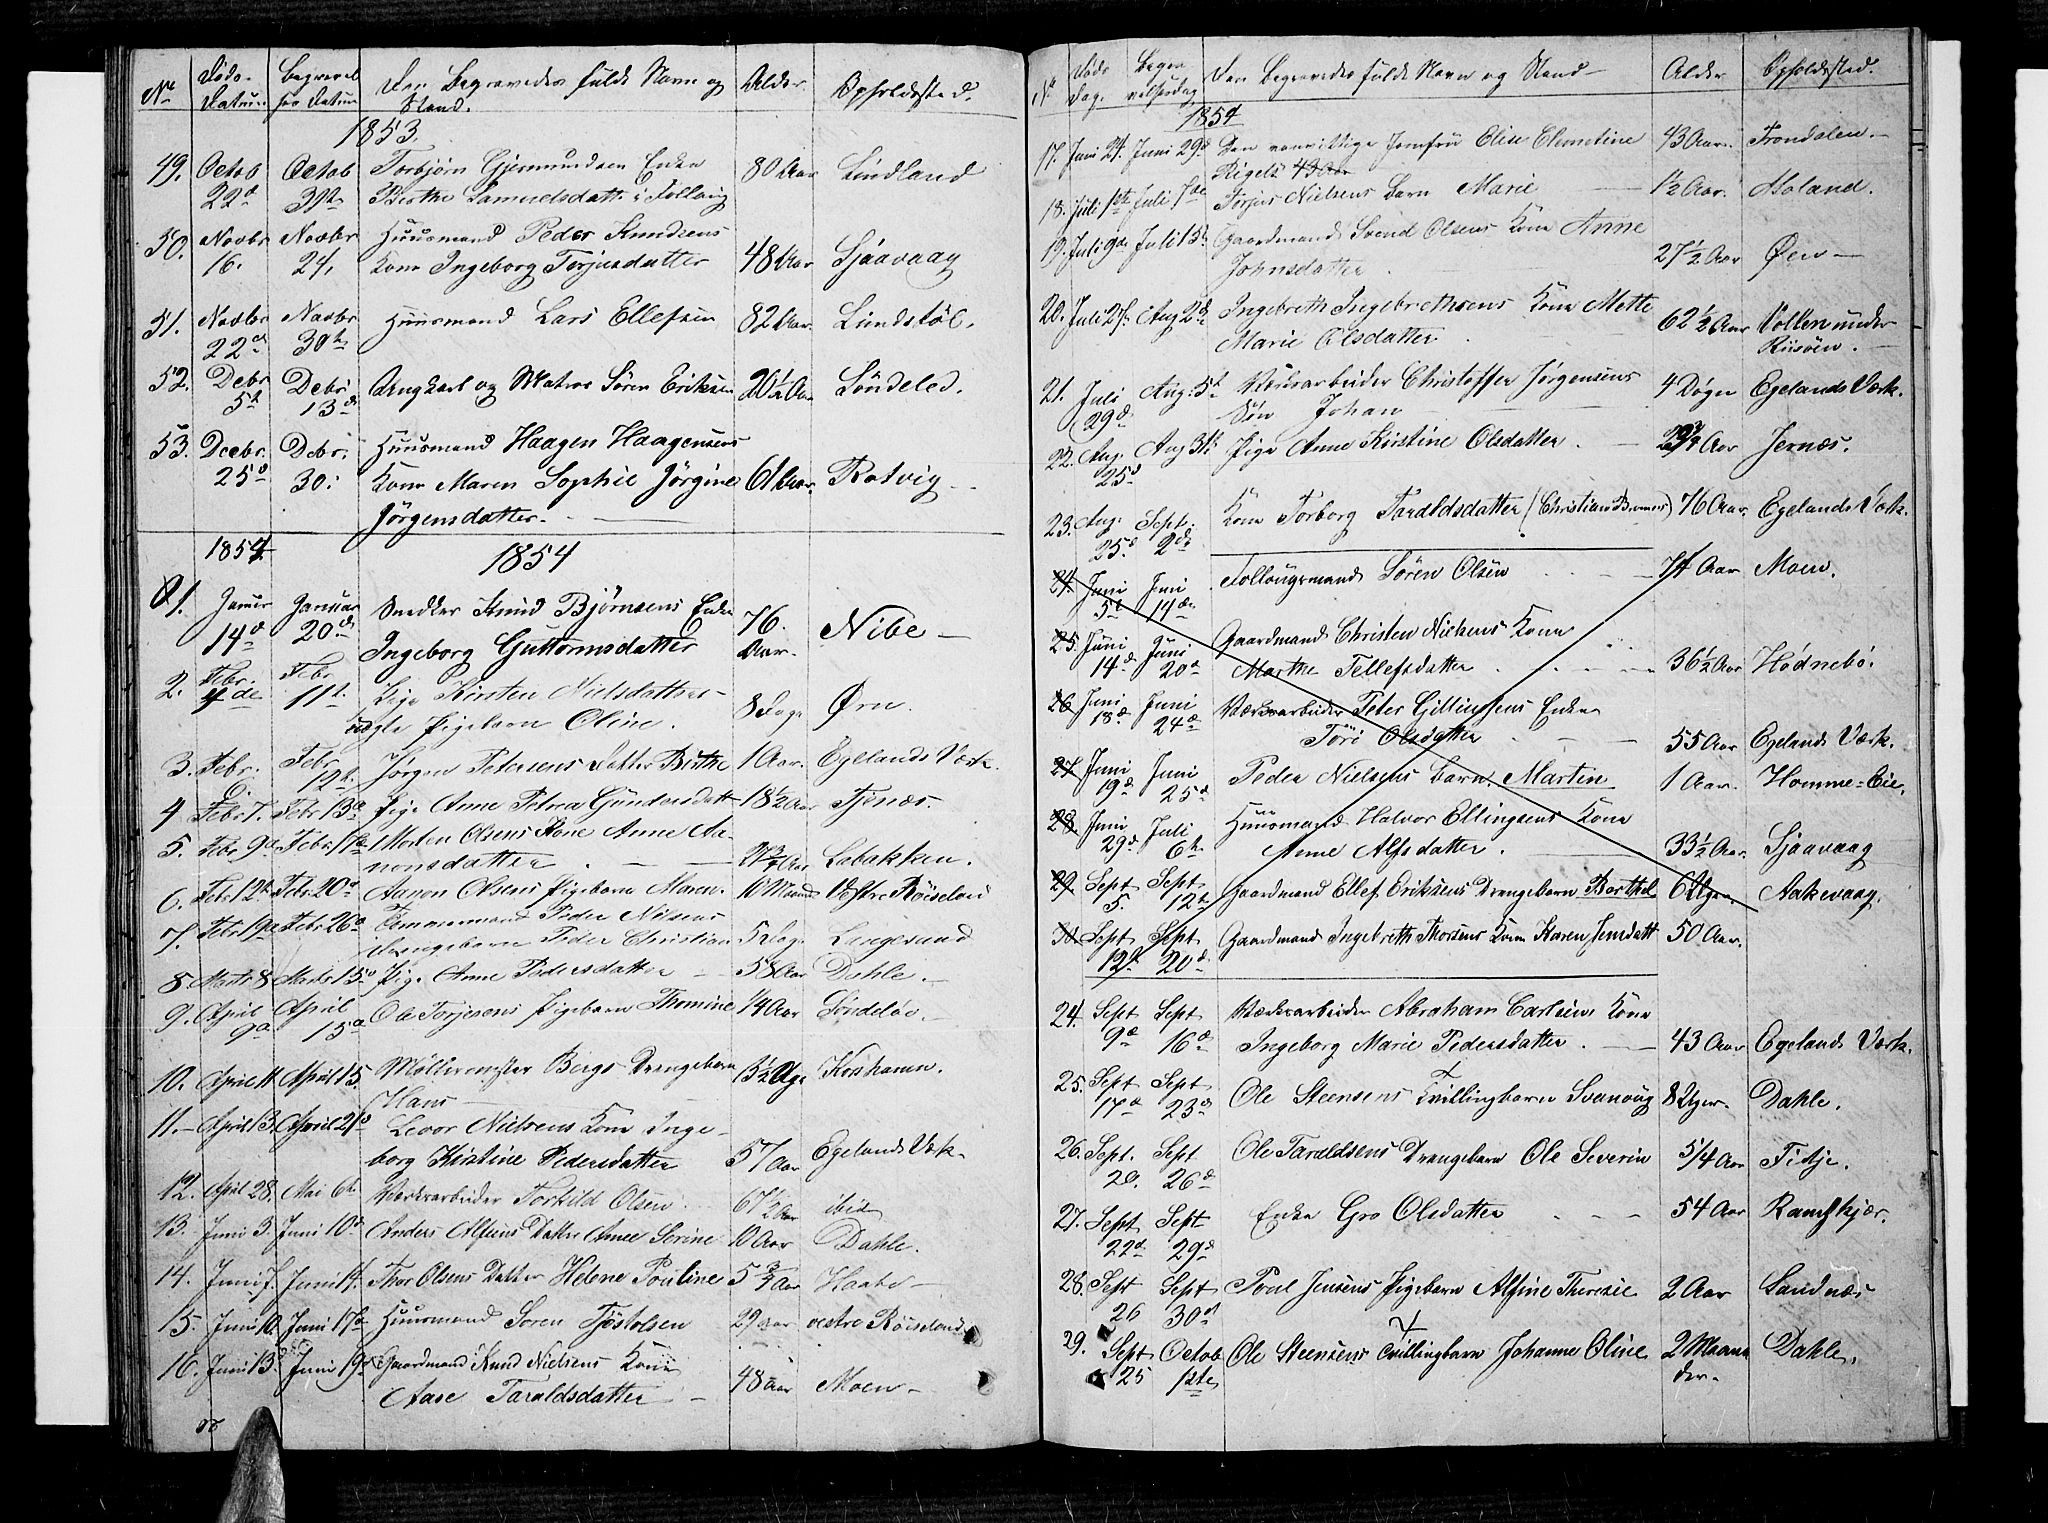 No
Døds- Datum
Begravel
sens Datum
Den Begravedes fulde Navn og
Stand.
Alder
Opholdssted.
1853.
49. Octob 22d Octob 30te Torbjørn Gjermundsen Enke 80 Aar Lindland
Berthe Samuelsdatt
50. Novbr 16. Novbr 24. Huusmand Peder Knudsens
Kone Ingeborg Terjesdatter 48 Aar Sjaavaag
51. Novbr 22d Novbr 30te Huusmand Lars Ellefsen 82 Aar. Lundstøl.
52. Debr 5te Debr 13de Ungkarl og Matros Søren Eriksen 20½ Aar Søndeled.
53. Decbr. 25d Debr. 30. Huusmand Haagen Haagensens
Kone Maren Sophie Jørgine 61 Aar. Rotvig
Jørgensdatter.
1854 1854
1. Januar 14d Januar 20de Snedker Knud Bjørnsens Enke 76. Aar. Nibe
Ingeborg Guttormsdatter
2. Febr. 4de Febr 11te Pige Kirsten Nielsdatters
uægte Pigebarn Oline. 8 Dage Øen.
3. Febr. 6. Febr 12te Jørgen Petersens Datter Berthe 1 Aar. Egelands Værk.
4. Febr 7. Febr 13d Pige Anne Petrea Gundersdatt 18½ Aar
5. Febr. 9d Morten Olsens Kone Anne Aa-
nonsdatter Labakken.
6. Febr 12te Febr. 20d Aanon Olsens Pigebarn Maren. 10 Maaned Vestre Røiseland
7. Febr 19d Febr 26d Tømmermand Peder Nilsens
Drengebarn Peder Christian 5 Dage Langesund
8. Marts 8 Marts 15d Pige Anne Pedersdatter 58 Aar Dahle.
9. April 9d April 15d Ole Terjesens Pigebarn Thomine Søndeløv.
10. April 11 April 15. Møllermester Bergs Drengebarn
Hans
11. April 13. April 21d Levor Nielsens Kone Inge-
borg Kirstine Pedersdatter 57 Aar Egelands Værk.
12. April 28. Mai 6te Værksarbeider Torkild Olsen 67½ Aar ibid
13. Juni 3. Juni 10d Anders Alfsens Datter Anne Serine 10 Aar Dahle.
14. Juni 7. Juni 14. Thor Olsens Datter Helene Pouline 5¾ Aar
15. Juni 10. Juni 17d Huusmand Søren Tjøstolsen 29 Aar vestre Røiseland
16. Juni 13. Juni 19d Gaardmand Knud Nielsens Kone
Aase Taraldsdatter 48 Aar Moen
No
Døds Dag.
Begra
velsesdag
Den Begravedes fulde Navn og Stand
Alder
Opholdssted.
1854
17. Juni 24. Juni 29d Den vanvittige Jomfru Elise Clemetine 43 Aar. Frondalen.
Rigels 43 Aar
18. Juli 1ste Juli Torjus Nielsens Barn Marie 1½ Aar. Moland.
19. Juli 9de Juli 15d Gaardmand Svend Olsens Kone Anne
Johnsdatter 27½ Aar Øen
20. Juli 27. Aug 2d Ingebreth Ingebrethsens Kone Mette 62½ Aar Vollen under
Marie Olsdatter Riisøen.
21. Juli 29d Aug. 5te Værksarbeider Christoffer Jørgensens 4 Døgn Egelands Værk.
Søn Johan
22. Aug. 25d Aug 31te Pige Anne Kirstine Olsdatter Aar Jernæs.
23. Aug. 25d Sept. 2de Kone Torborg Taraldsdatter (Christian Brones) 76 Aar. Egelands Værk.
24. Juni 5te Juni 14de Follougsmand Søren Olsen 74 Aar Moen.
25. Juni 14d Juni 20d Gaardmand Christen Nielsens Kone
Marthe Tellefsdatter 36½ Aar Hødnebø.
26. Juni 18d Juni 24de Værksarbeider Peter Gillingsens Enke
Tøri Olsdatter 55 Aar Egelands Værk.
27. Juni 19d Juni 25d Peder Nielsens Barn Martin 1 Aar. Homme-Eie.
28. Juni 29d Juli 6te Huusmand Halvor Ellingsens Kone
Anne Alfsdatter. 33½ Aar. Sjaavaag
29. Sept 5. Sept 12te Gaardmand Ellef Eriksens Drengebarn Berthel 6 Uger Aakevaag.
30. Sept 12te Sept 20d Gaardmand Ingebreth Thorsens Kone Karen Jensdatt 50 Aar.
24. Sept 9d Sept 16d Værksarbeider Abraham Carlsens Kone
Ingeborg Marie Pedersdatter 43 Aar Egelands Værk.
25. Sept 17d Sept 23d Ole Steensens Tvillingbarn Svanoug 8 Uger. Dahle.
26. Sept. 20. Sept 26d Ole Taraldsens Drengebarn Ole Severin 5/4 Aar Fidje.
27. Sept 22d Sept 29d Enke Gro Olsdatter 54 Aar Ramskjær.
28. Sept 26 Sept 30d Poul Jensens Pigebarn Alfine Therezie 2 Aar Sandnæs
29. Sept 25 Octob 1ste Ole Steensens Tvillingbarn Johanne Oline 2 Maane Dahle.
der.